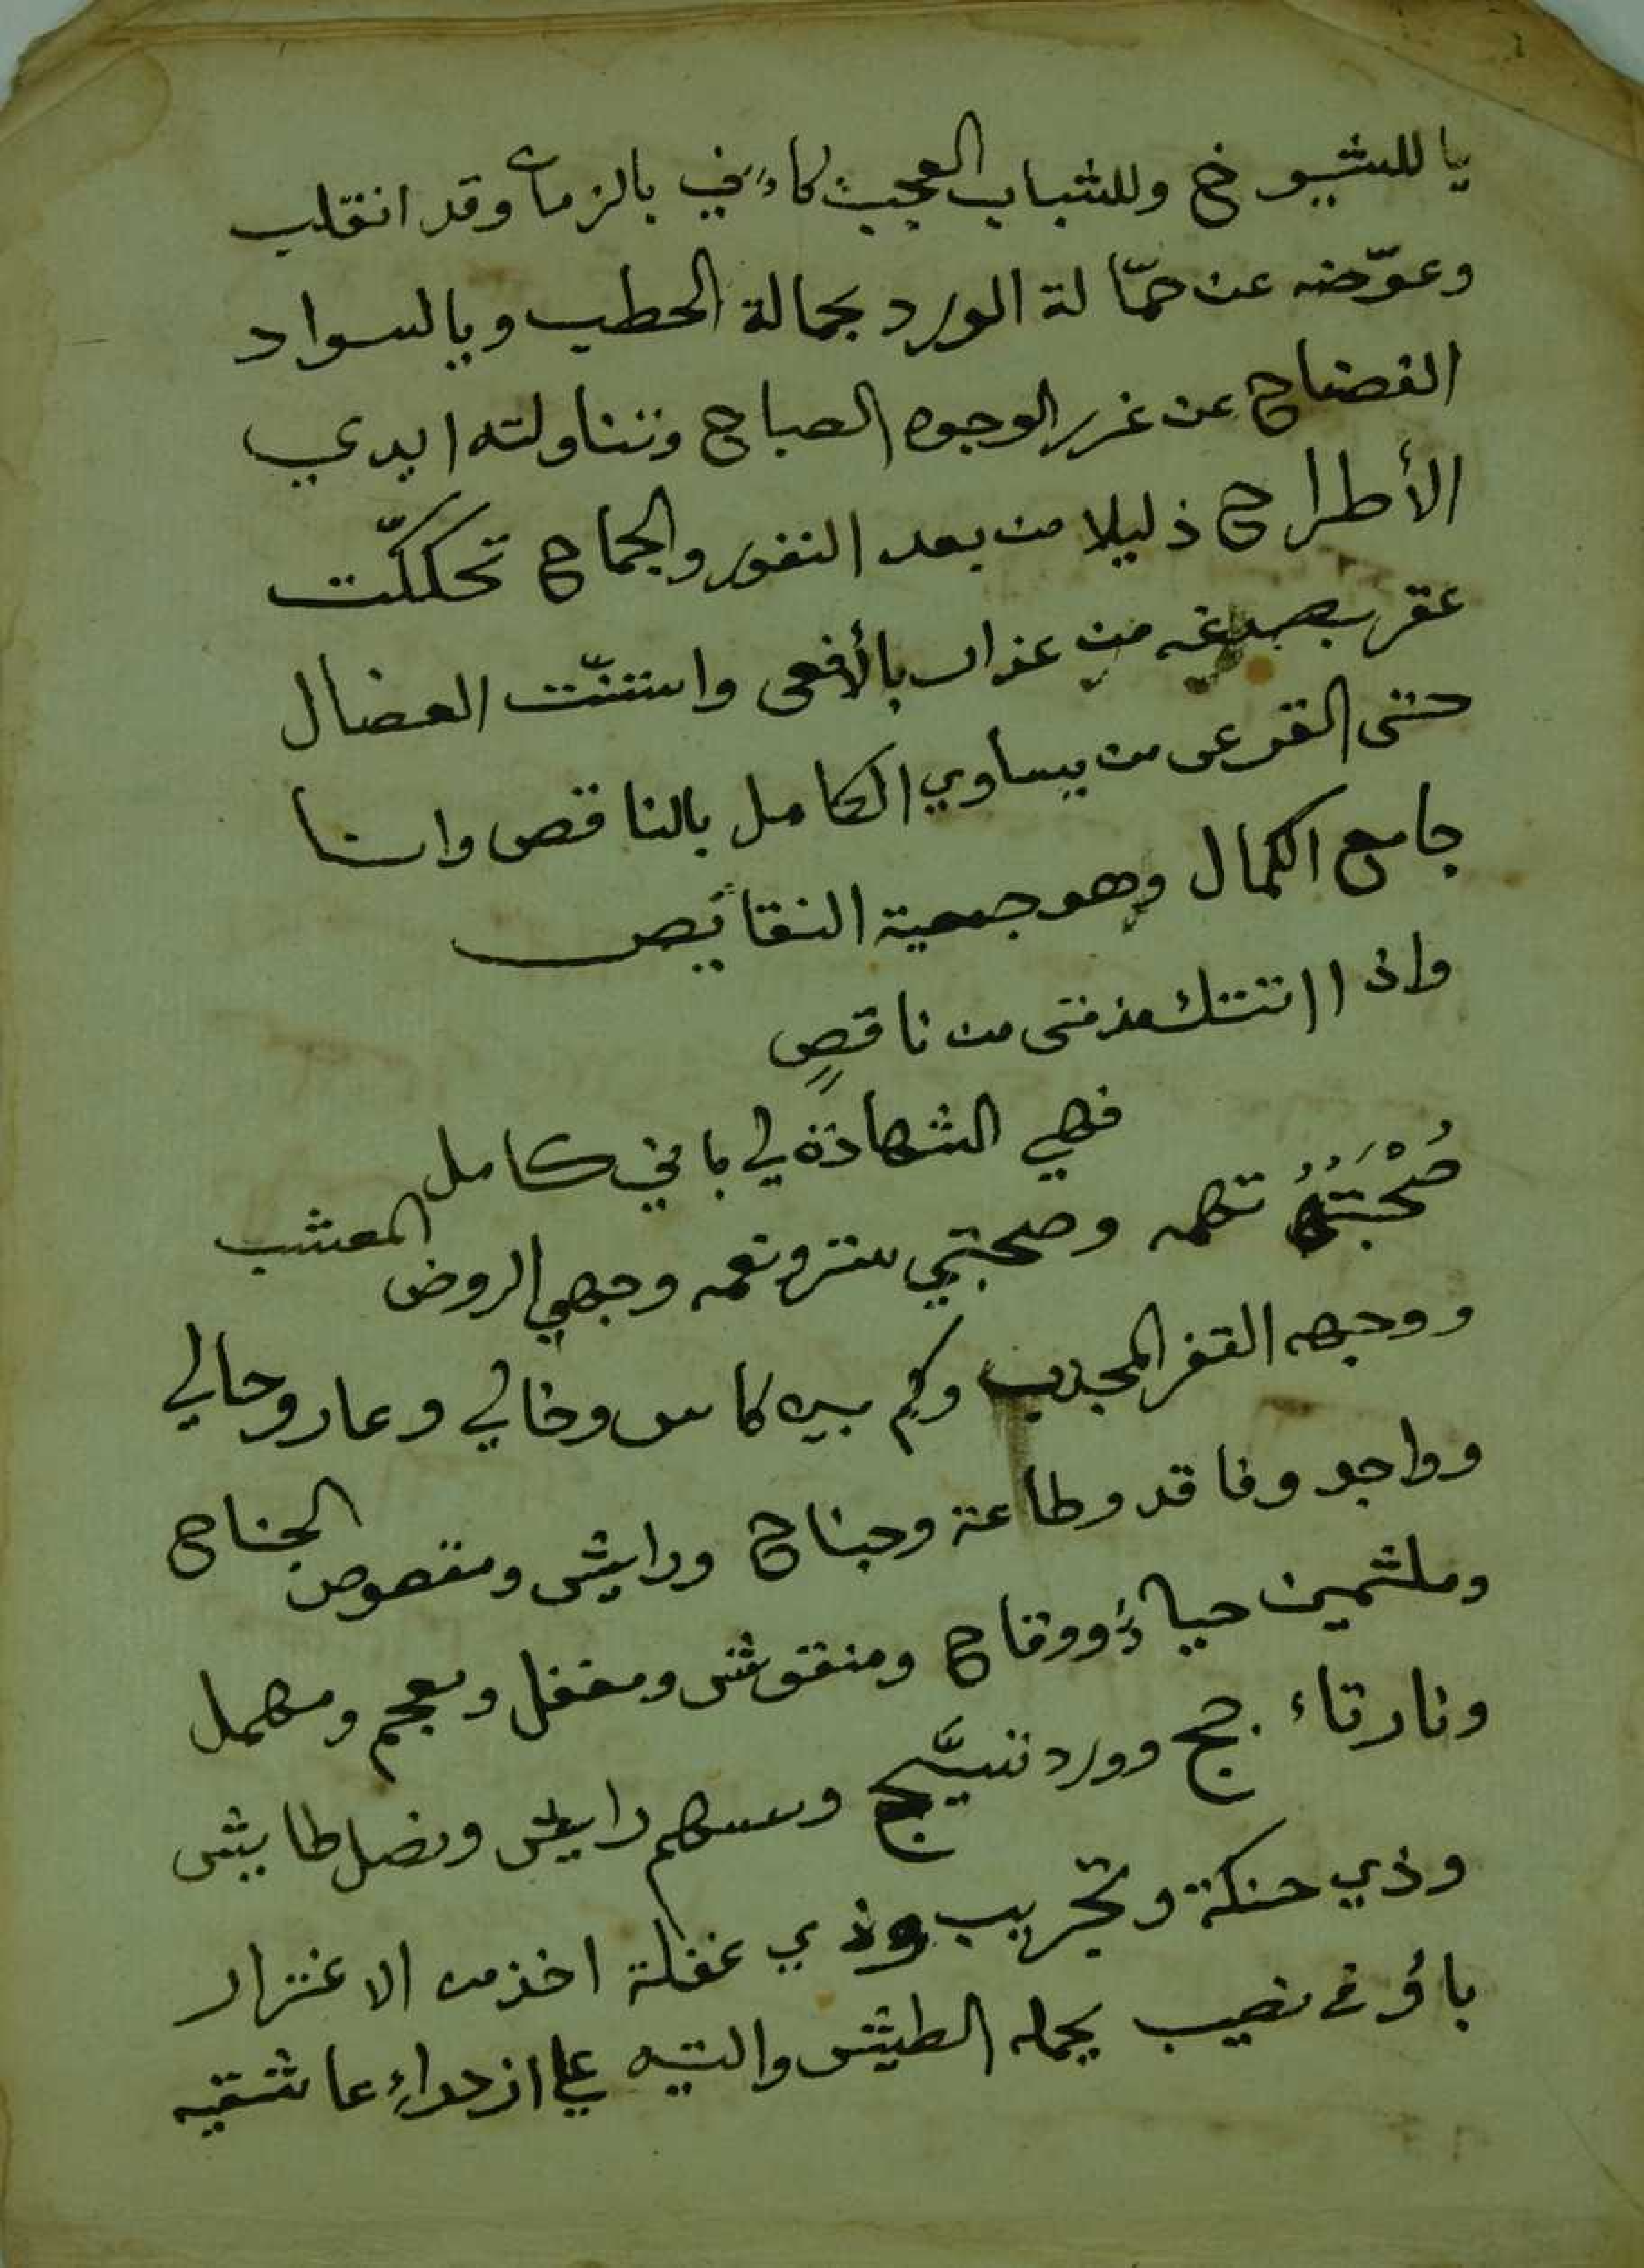 يا للشيوخ وللشباب العجب كاءني بالزمان وقد انقلب
وعوّضه عن حمّالة الورد بحمالة الحطب وبالسواد
الفضاح عن غرر الوجوه الصباح وتناولته ايدي
الأطراح ذليلا من بعد النفور والجماح تحككّت
عقرب صدغه من عذار بالأفعى واستنّت العضال
حتى القرعى من يساوي الكامل بالناقص وانا
جامع الكمال وهو جمعية النقائص
واذا اتتك مذمتي من ناقصٍ
فهي الشهادة لي باني كامل
صُحْبَتَهُ تهمه وصحبتي ستر ونعمه وجهي الروض المعشب
ووجهه القفر المجدب وكم بين كاس وخالي وعار وحالي
وواجد وفاقد وطاعة وجناح ورايش ومقصوص الجناح
وملثمين حياءٍ ووقاح ومنقوش ومغفل ومعجم ومهمل
ونار تاءجج وورد تسيَّج وسهم رايش ونصل طايش
وذي حنكة وتجريب وذي غفلة اخذ من الاغترار
باؤفى نصيب يحمله الطيش والتيه علي ازدراء عاشقيه